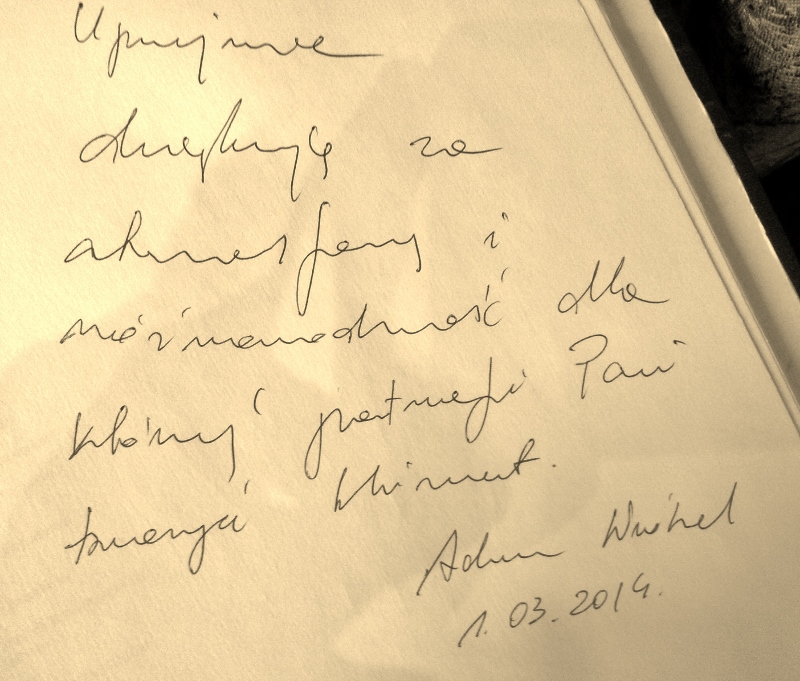 Uprzejmie
dziękuję za
atmosferę i
różnorodność dla
której potrafi Pani
tworzyć klimat.
Adam Wróbel
1.03.2014.